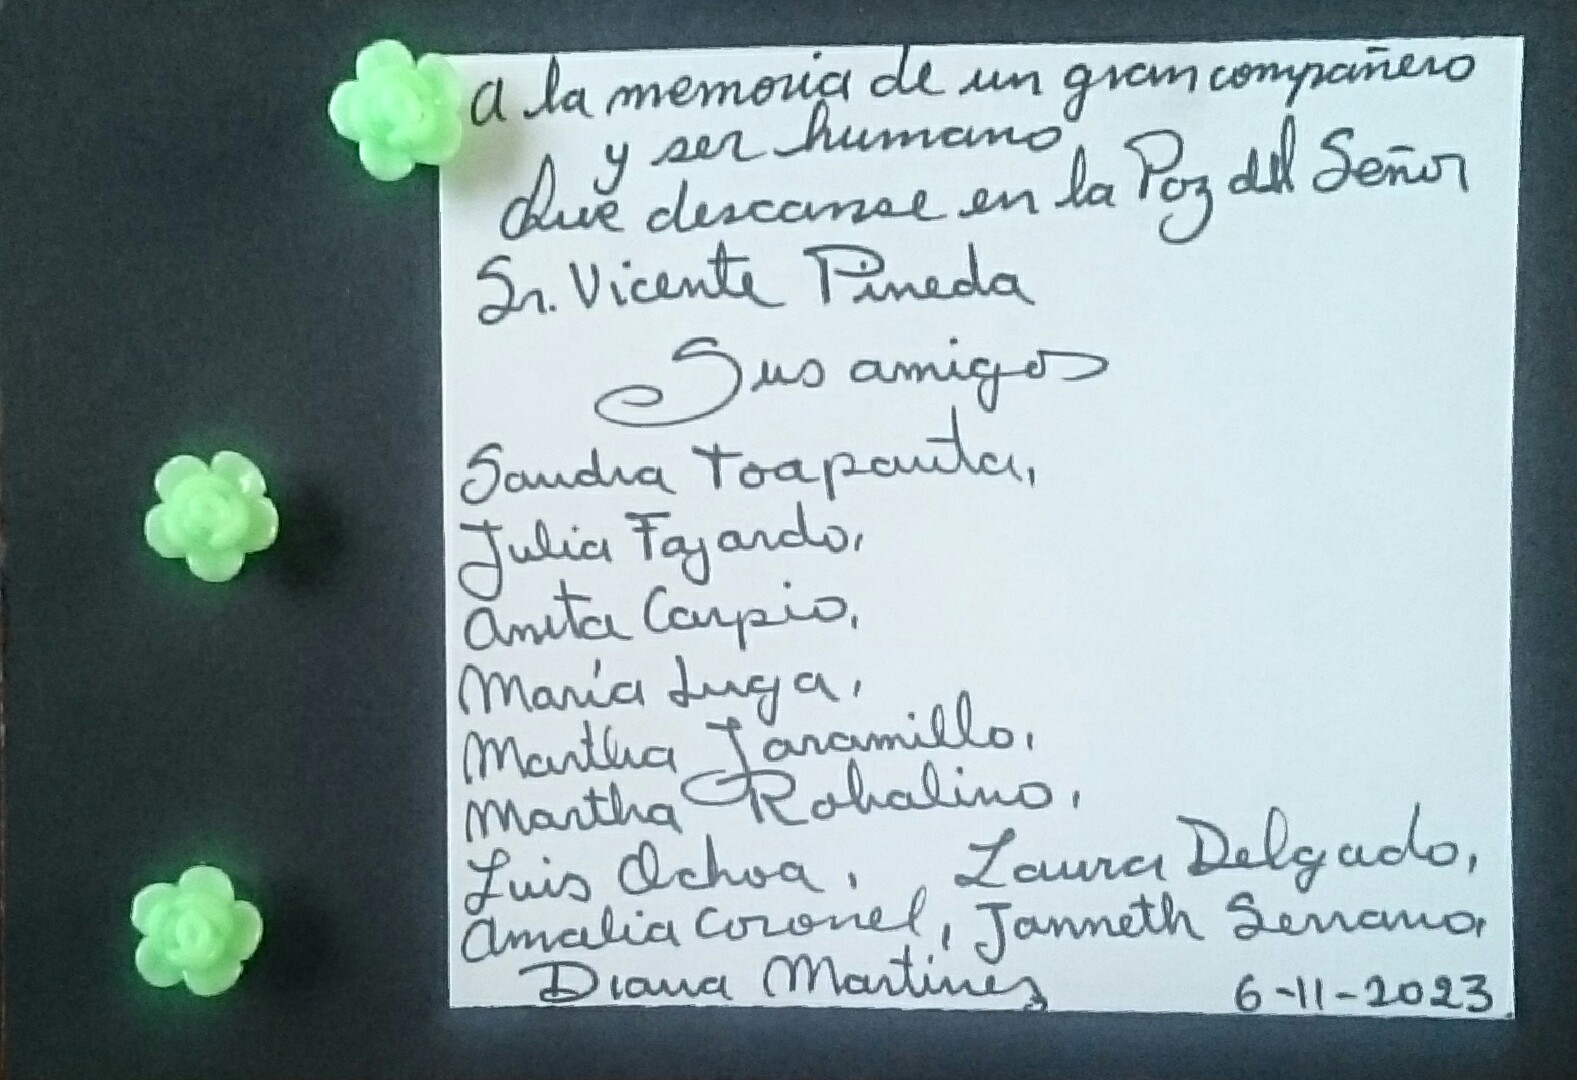 a la memoria de un gran compañero
y ser humano
Que descanse en la Paz del Señor
Sr. Vicente Pineda
Sus amigos
Sandra Toapanta,
Julia Fajardo,
Anita Carpio,
María Luga,
Martha Jaramillo,
Martha Robalino,
Luis Ochoa, Laura Delgado,
Amalia Coronel, Janneth Serrano,
Diana Martínez 6-11-2023